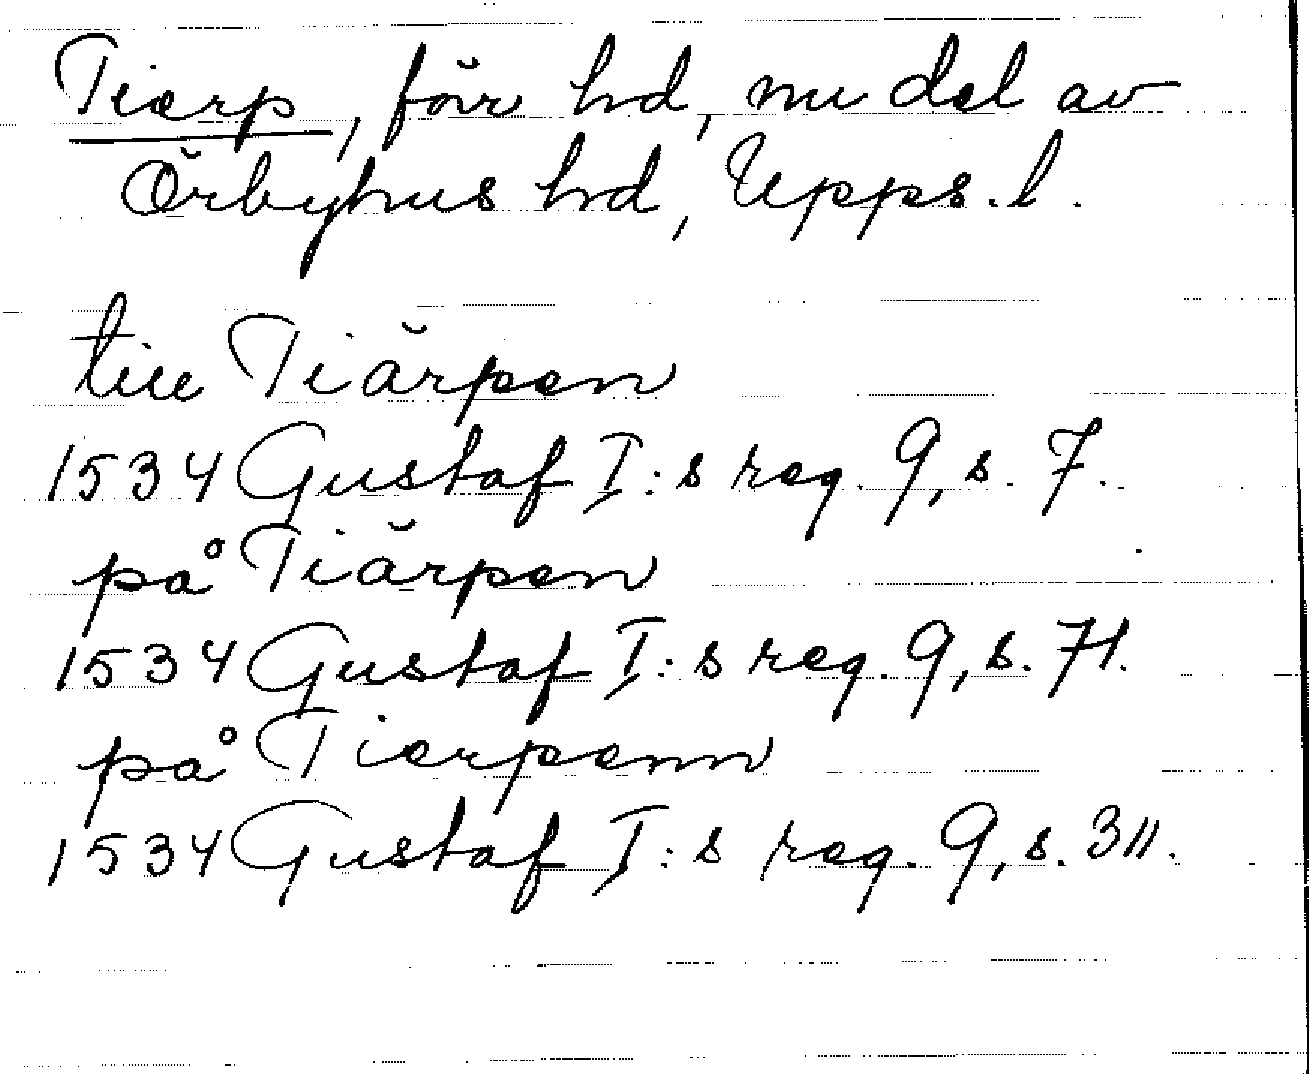 Tierp, förr hd, nu del av
Örbyhus hd, Upps. l.
till Tiärpen
1534 Gustaf I:s reg. 9, s. 7.
på Tiärpen
1534 Gustaf I:s reg. 9, s. 71.
på Tierpenn
1534 Gustaf I:s reg. 9, s. 311.